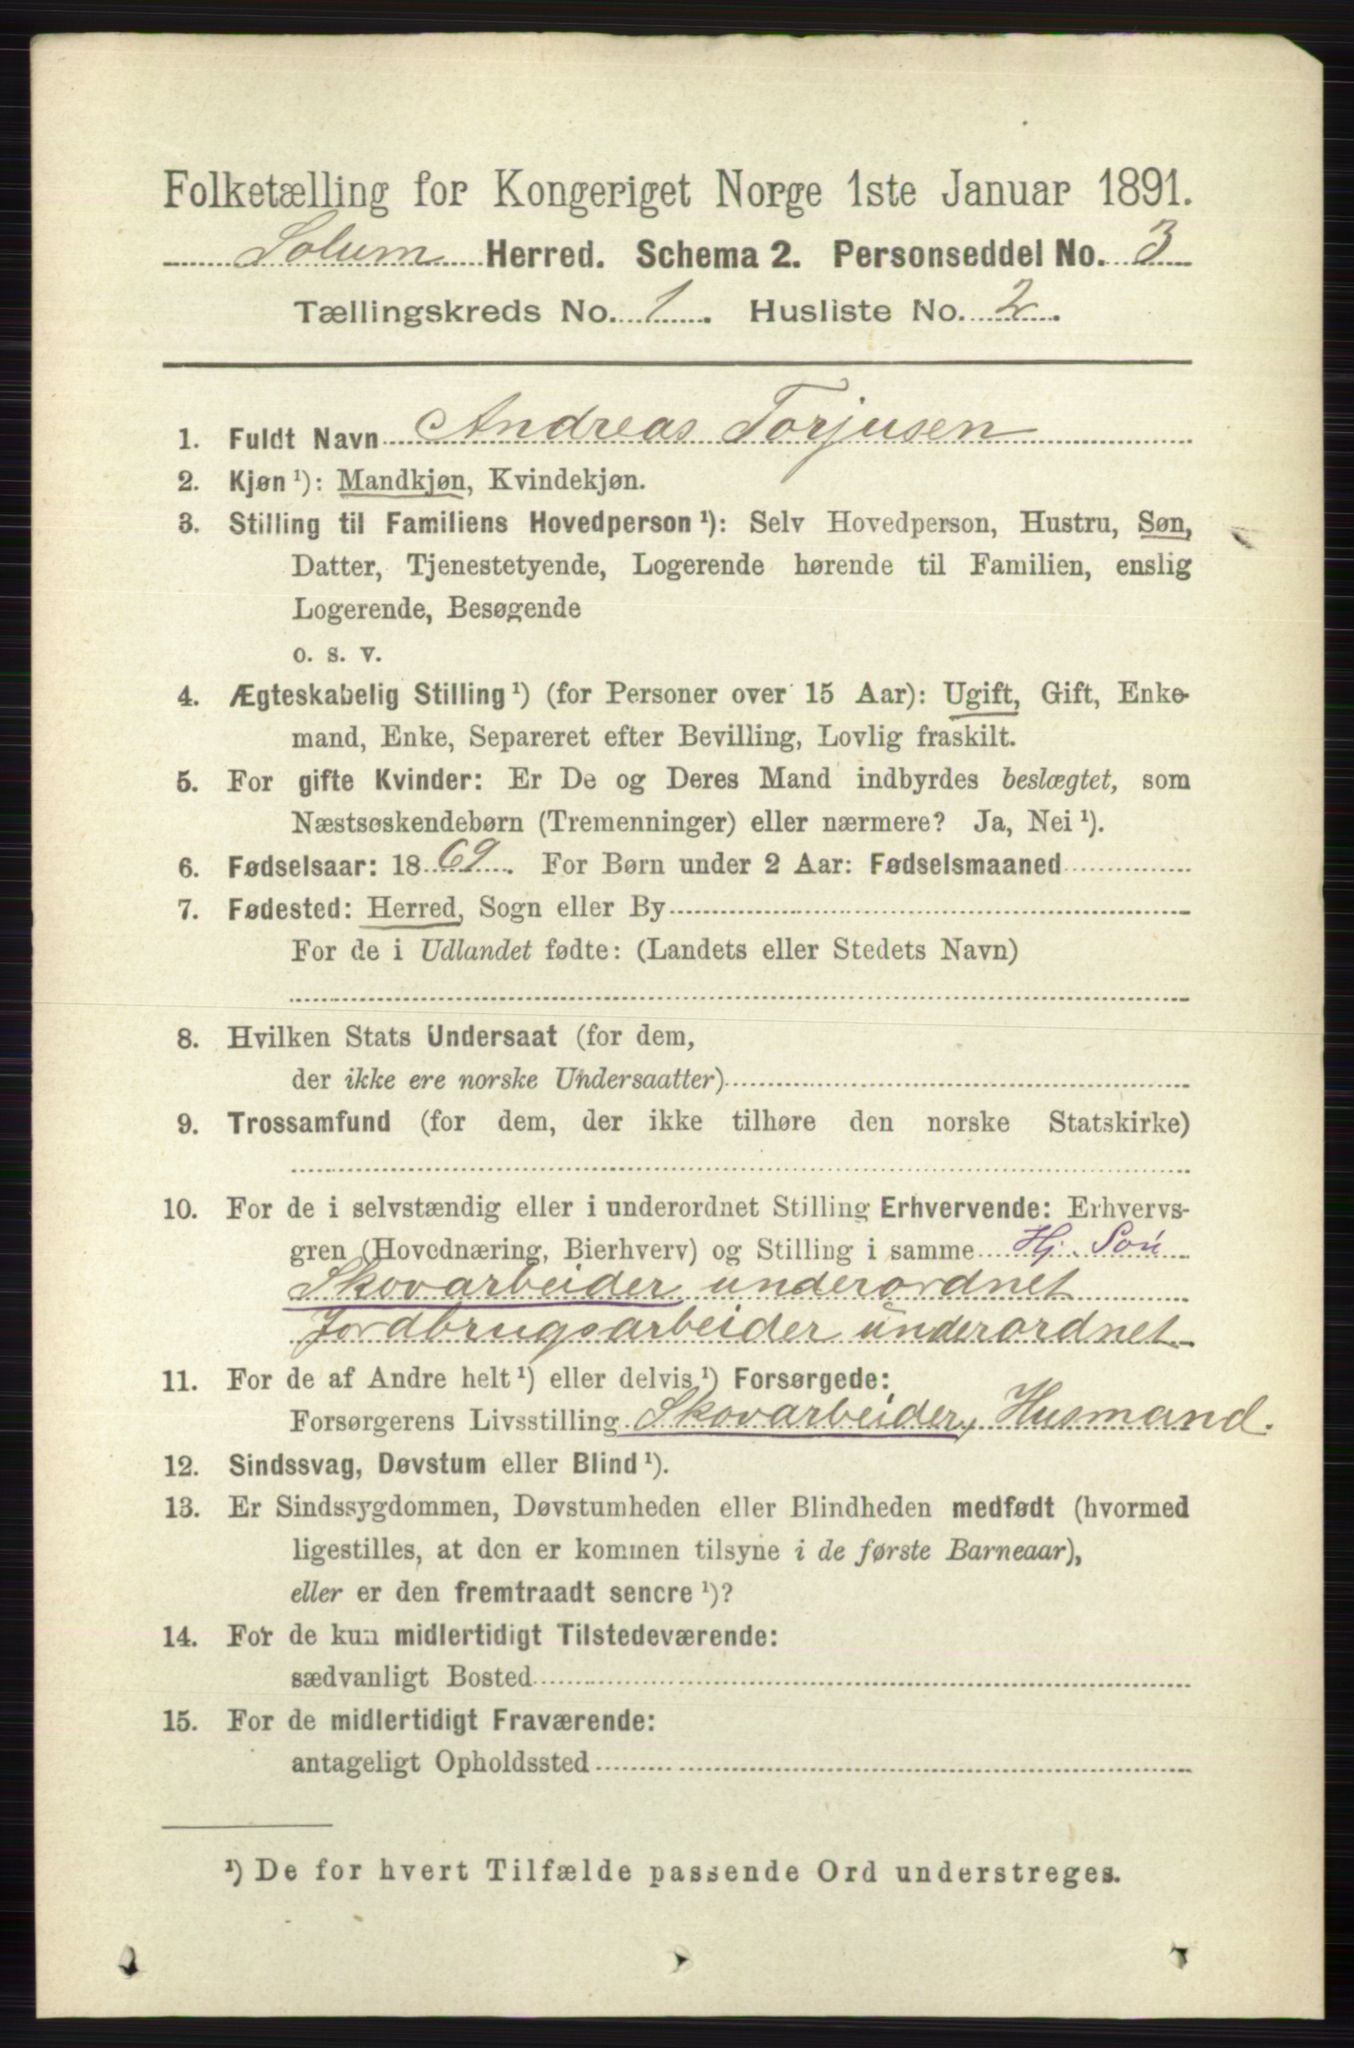 Folketælling for Kongeriget Norge 1ste Januar 1891.
Solum Herred. Schema 2. Personseddel No. 3
Tællingskreds No. 1. Husliste No. 2.
1. Fuldt Navn Andreas Torjusen
2. Kjøn ¹): Mandkjøn, Kvindekjøn.
3. Stilling til Familiens Hovedperson ¹): Selv Hovedperson, Hustru, Søn,
Datter, Tjenestetyende, Logerende hørende til Familien, enslig
Logerende, Besøgende
o. s. v.
4. Ægteskabelig Stilling ¹) (for Personer over 15 Aar): Ugift, Gift, Enke-
mand, Enke, Separeret efter Bevilling, Lovlig fraskilt.
5. For gifte Kvinder: Er De og Deres Mand indbyrdes beslægtet, som
Næstsøskendebørn (Tremenninger) eller nærmere? Ja, Nei ¹).
6. Fødselsaar: 1869. For Børn under 2 Aar: Fødselsmaaned
7. Fødested: Herred, Sogn eller By
For de i Udlandet fødte: (Landets eller Stedets Navn)
8. Hvilken Stats Undersaat (for dem,
der ikke ere norske Undersaatter)
9. Trossamfund (for dem, der ikke tilhøre den norske Statskirke)
10. For de i selvstændig eller i underordnet Stilling Erhvervende: Erhvervs-
gren (Hovednæring, Bierhverv) og Stilling i samme Hj. Søn
Skovarbeider underordnet
Jordbrugsarbeider underordnet
11. For de af Andre helt ¹) eller delvis ¹) Forsørgede:
Forsørgerens Livsstilling Skovarbeider, Husmand.
12. Sindssvag, Døvstum eller Blind ¹).
13. Er Sindssygdommen, Døvstumheden eller Blindheden medfødt (hvormed
ligestilles, at den er kommen tilsyne i de første Barneaar),
eller er den fremtraadt senere ¹)?
14. For de kun midlertidigt Tilstedeværende:
sædvanligt Bosted
15. For de midlertidigt Fraværende:
antageligt Opholdssted
¹) De for hvert Tilfælde passende Ord understreges.